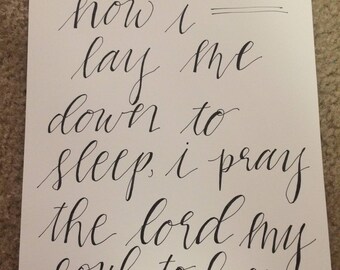 now i
lay me
down to
sleep, i pray
the lord my
soul to keep